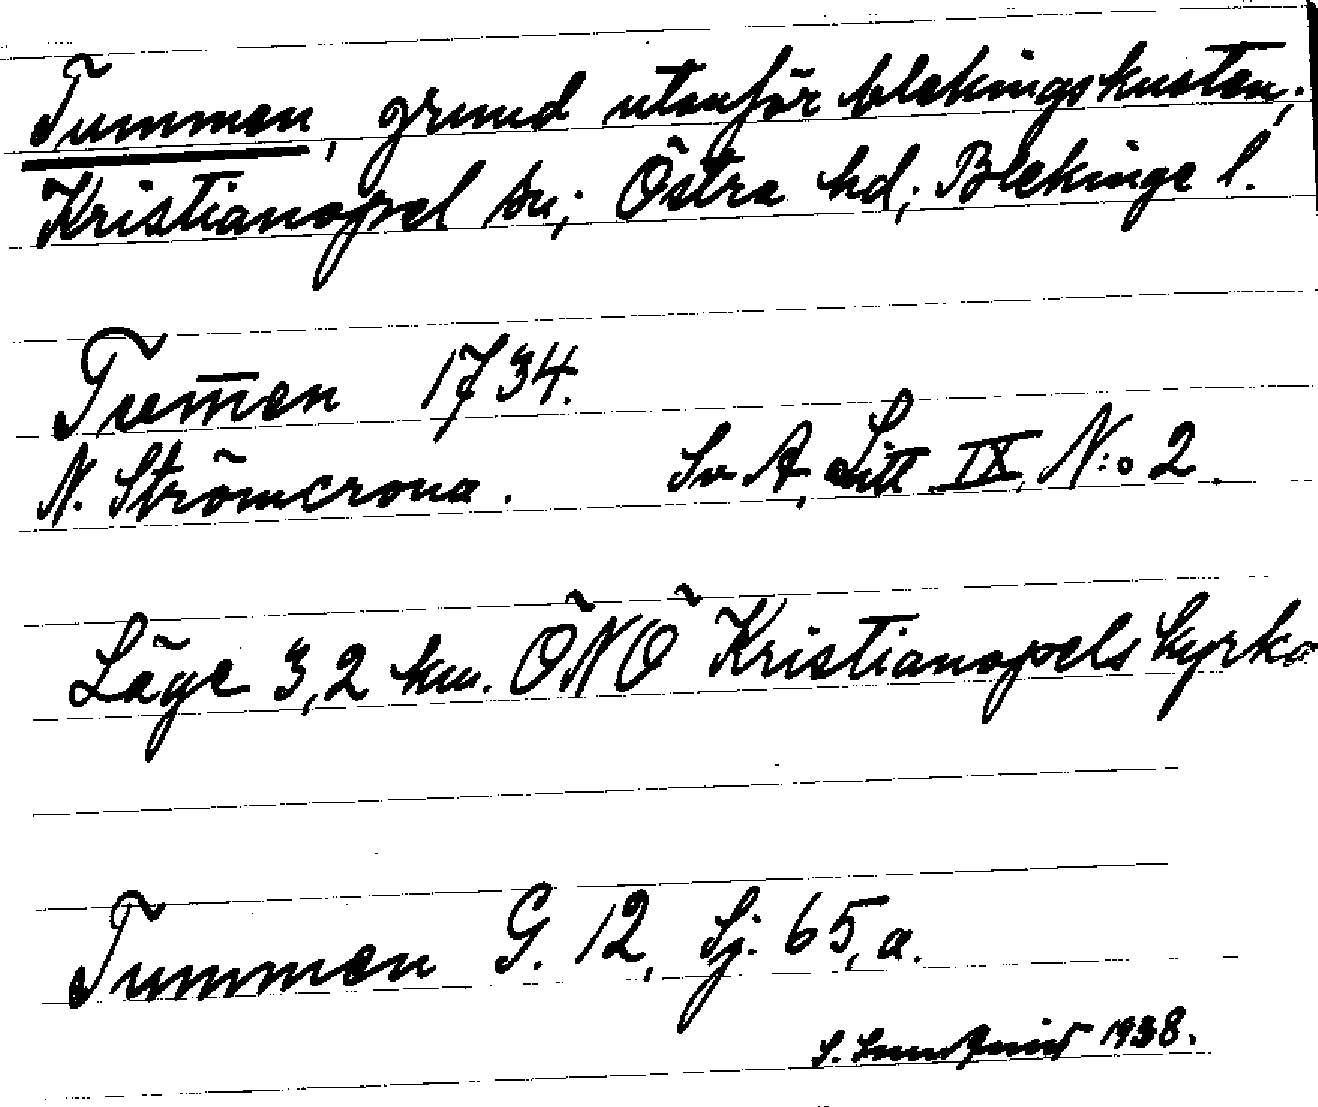 Tummen, grund utanför blekingskusten,
Kristianopel sn; Östra hd; Blekinge l.
Tum̅en 1734.
N. Strömcrona. Sv A, Litt IX, N:o 2.
Läge 3,2 km. ÖNÖ Kristianopels kyrka
Tummen G. 12, Sj. 65, a.
S. 1938.